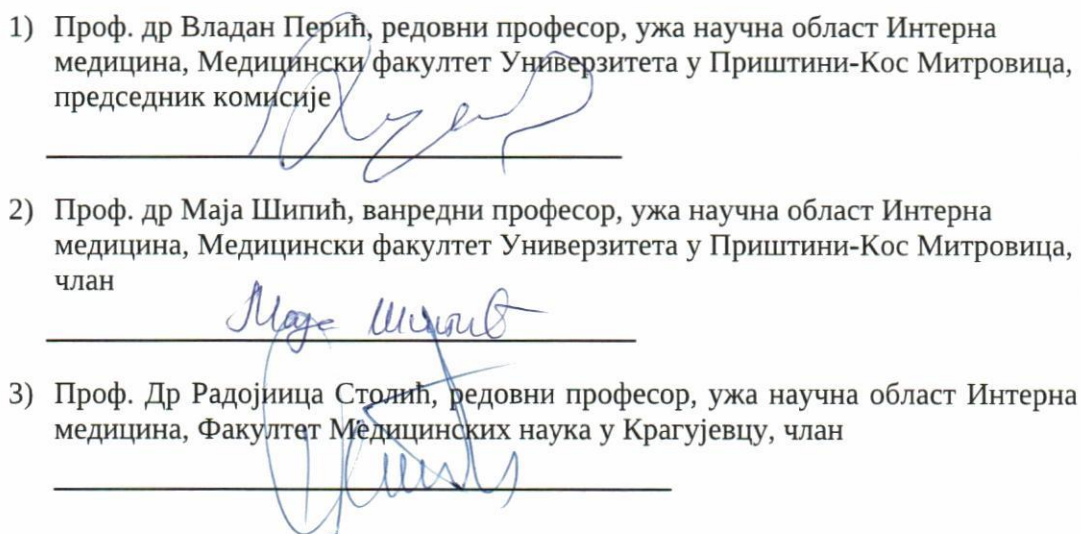 1) Проф. др Владан Перић, редовни професор, ужа научна област Интерна
медицина, Медицински факултет Универзитета у Приштини-Кос Митровица,
председник комисије
2) Проф. др Маја Шипић, ванредни професор, ужа научна област Интерна
медицина, Медицински факултет Универзитета у Приштини-Кос Митровица,
члан
Маја Шипић
3) Проф. Др Радојиица Столић, редовни професор, ужа научна област Интерна
медицина, Факултет Медицинских наука у Крагујевцу, члан